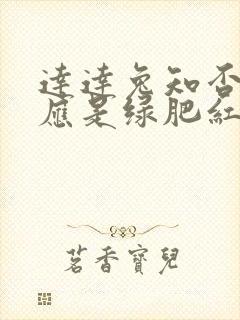 達達兔知否
應是绿肥紅
茗香寶兒